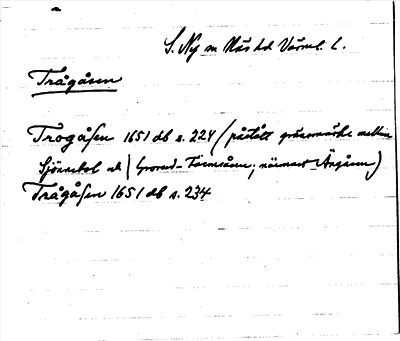 S. Ny sn Näs hd Värml. l.
Trågåsen
Trogåsen 1651 db s. 224 (påstått gränsmärke mellan
Sjönnebol och
närmast Ängåsen)
Trågåsen 1651 db s. 234